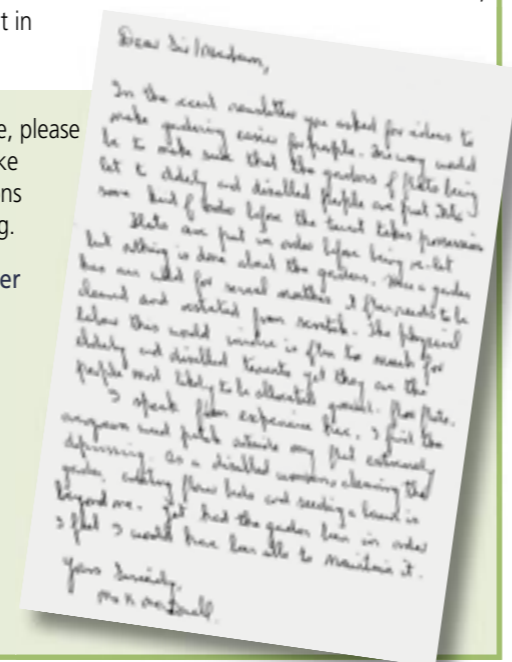 t in
e, please
ke
ns
g.
er
Dear Sir/Madam,
In the recent newsletter you asked for ideas to
make gardening easier for people. One way would
be to make sure that the gardens of flats being
let to elderly and disabled people are put into
some kind of order before the tenant takes possession
Flats are put in order before being re-let
but nothing is done about the gardens. Once a garden
has been untended for several months it often needs to be
cleared and restarted from scratch. The physical
labour this would involve is often too much for
elderly and disabled tenants yet they are the
people most likely to be allocated ground floor flats.
I speak from experience here. I find the
overgrown weed patch outside my flat extremely
depressing. As a disabled woman, clearing the
garden, cutting flower beds and seeding a lawn is
beyond me. Yet had the garden been in order
I feel I would have been able to maintain it.
Yours Sincerely,